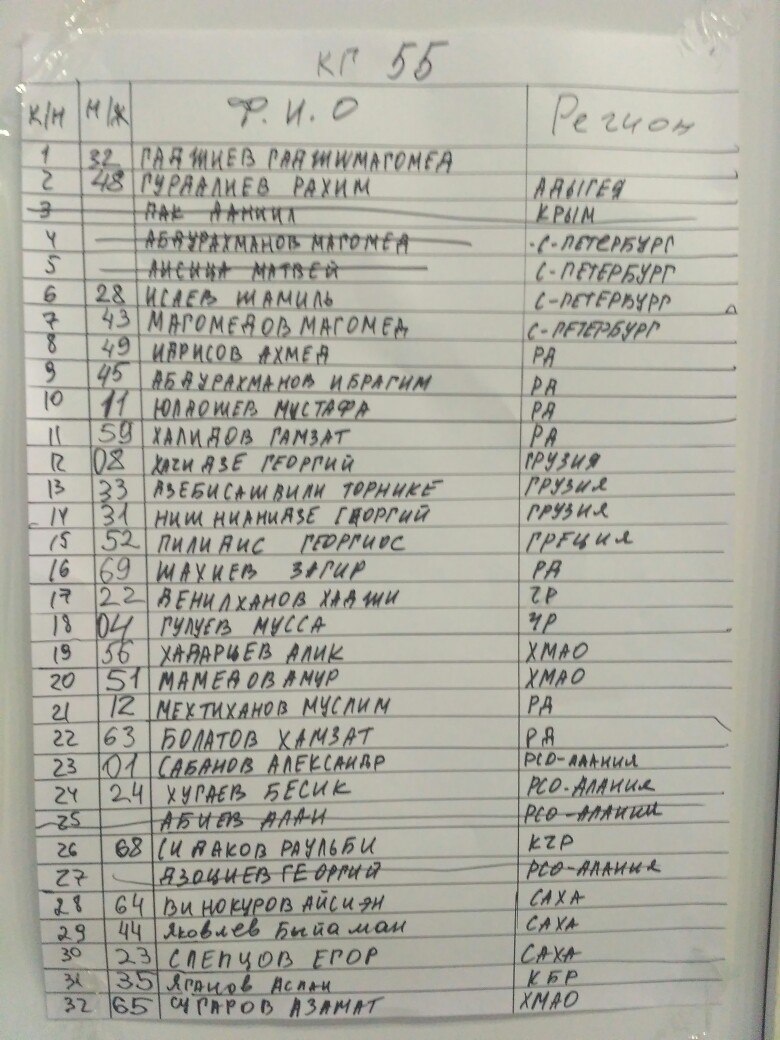 КГ 55
К/Н М/Ж Ф.И.О Регион
1 32 ГАДЖИЕВ ГАДЖИМАГОМЕД
2 48 ГУРДАЛИЕВ РАХИМ АДЫГЕЯ
3 ПАК ДАНИИЛ КРЫМ
4 АБДУРАХМАНОВ МАГОМЕД С-ПЕТЕРБУРГ
5 ЛИСИЦА МАТВЕЙ С-ПЕТЕРБУРГ
6 28 ИСАЕВ ШАМИЛЬ С-ПЕТЕРБУРГ
7 43 МАГОМЕДОВ МАГОМЕД С-ПЕТЕРБУРГ
8 49 ИДРИСОВ АХМЕД РД
9 45 АБДУРАХМАНОВ ИБРАГИМ РД
10 11 МУСТАФА РД
11 59 ХАЛИДОВ ГАМЗАТ РД
12 08 ХАЧИДЗЕ ГЕОРГИЙ ГРУЗИЯ
13 33 АЗЕБИСАШВИЛИ ТОРНИКЕ ГРУЗИЯ
14 31 НИШНИАНИДЗЕ ГЕОРГИЙ ГРУЗИЯ
15 52 ПИЛИДИС ГЕОРГИОС ГРЕЦИЯ
16 69 ШАХИЕВ ЗАГИР РД
17 22 ДЕНИЛХАНОВ ХАДЖИ ЧР
18 04 ГУЛУЕВ МУССА ЧР
19 56 ХАДАРЦЕВ АЛИК ХМАО
20 51 МАМЕДОВ АМУР ХМАО
21 12 МЕХТИХАНОВ МУСЛИМ РД
22 63 БОЛАТОВ ХАМЗАТ РД
23 01 САБАНОВ АЛЕКСАНДР РСО-АЛАНИЯ
24 24 ХУГАЕВ БЕСИК РСО-АЛАНИЯ
25 АБИЕВ АЛАН РСО-АЛАНИЯ
26 68 СИДАКОВ РАУЛЬБИ КЧР
27 ДЗОЦИЕВ ГЕОРГИЙ РСО-АЛАНИЯ
28 64 ВИНОКУРОВ АЙСИЭН САХА
29 44 Яковлев Быйаман САХА
30 23 СЛЕПЦОВ ЕГОР САХА
31 35 Яганов Аслан КБР
32 65 АЗАМАТ ХМАО